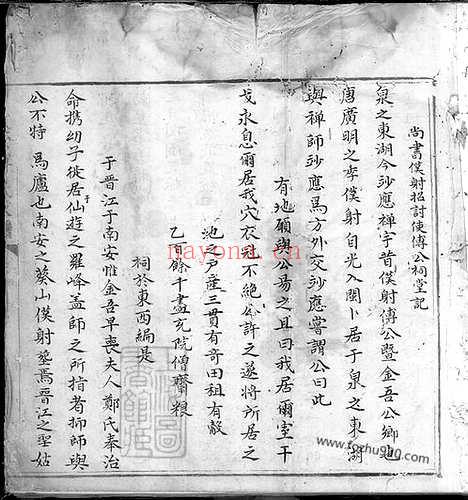 尚書僕射招討使傅公祠堂記
泉之東湖今妙應禪宇昔僕射傅公暨金吾公鄉也
唐廣明之季僕射自光入閩卜居于泉之東湖
與禪師妙應為方外交妙應嘗謂公曰此
有地願與公易之且曰我居爾室干
戈永息爾居我穴衣冠不絕公許之遂將所居之
池之戶產三貫有奇田租有
乙百餘千盡充院僧齋粮
祠於東西編是
于晉江子南安惟金吾早喪夫人鄭氏奉治
命携幼子徙居仙遊之羅峰盖師之所指者抑師與
公不特 馬廬也南安之葵山僕射塋焉晉江之聖姑
nayona.cn
www.fozhu920.com